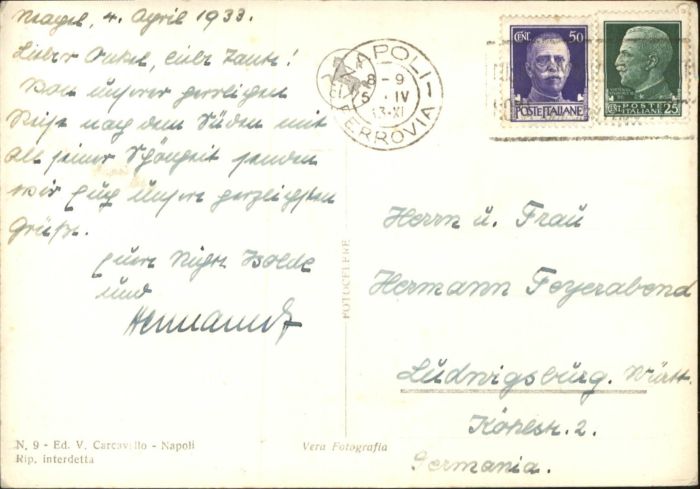 Neapel, 4. April 1933.
Lieber Onkel, liebe Tante!
Von unserer herrlichen
Reise nach dem Süden mit
all seiner Schönheit senden
wir Euch unsere herzlichsten
Grüße.
Eure Nichte Isolde
und
NAPOLI
FERROVIA
8-9
5 . IV
33·XI
CENT. 50
POSTE ITALIANE
POSTE ITALIANE
25
FOTOCELERE
Herrn u. Frau
Hermann Feyerabend
Ludwigsburg. Württ.
2.
Germania.
N. 9 - Ed. V. Carcavallo - Napoli
Rip. interdetta
Vera Fotografia